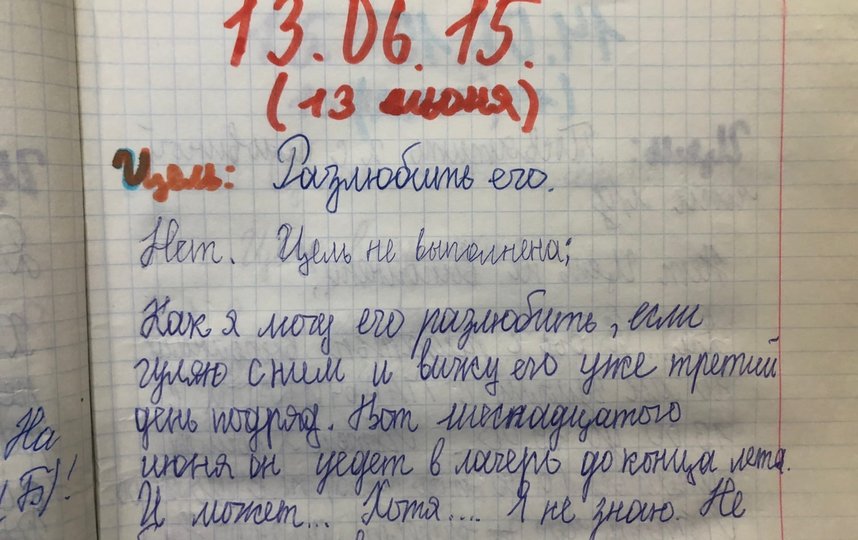 13.06.15.
(13 июня)
Цель: Разлюбить его.
Нет. Цель не выполнена;
Как я могу его разлюбить, если
гуляю с ним и вижу его уже третий
день подряд. Вот шеснадцатого
июня он уедет в лагерь до конца лета.
И может... Хотя.... Я не знаю. Не
На
(Б)!